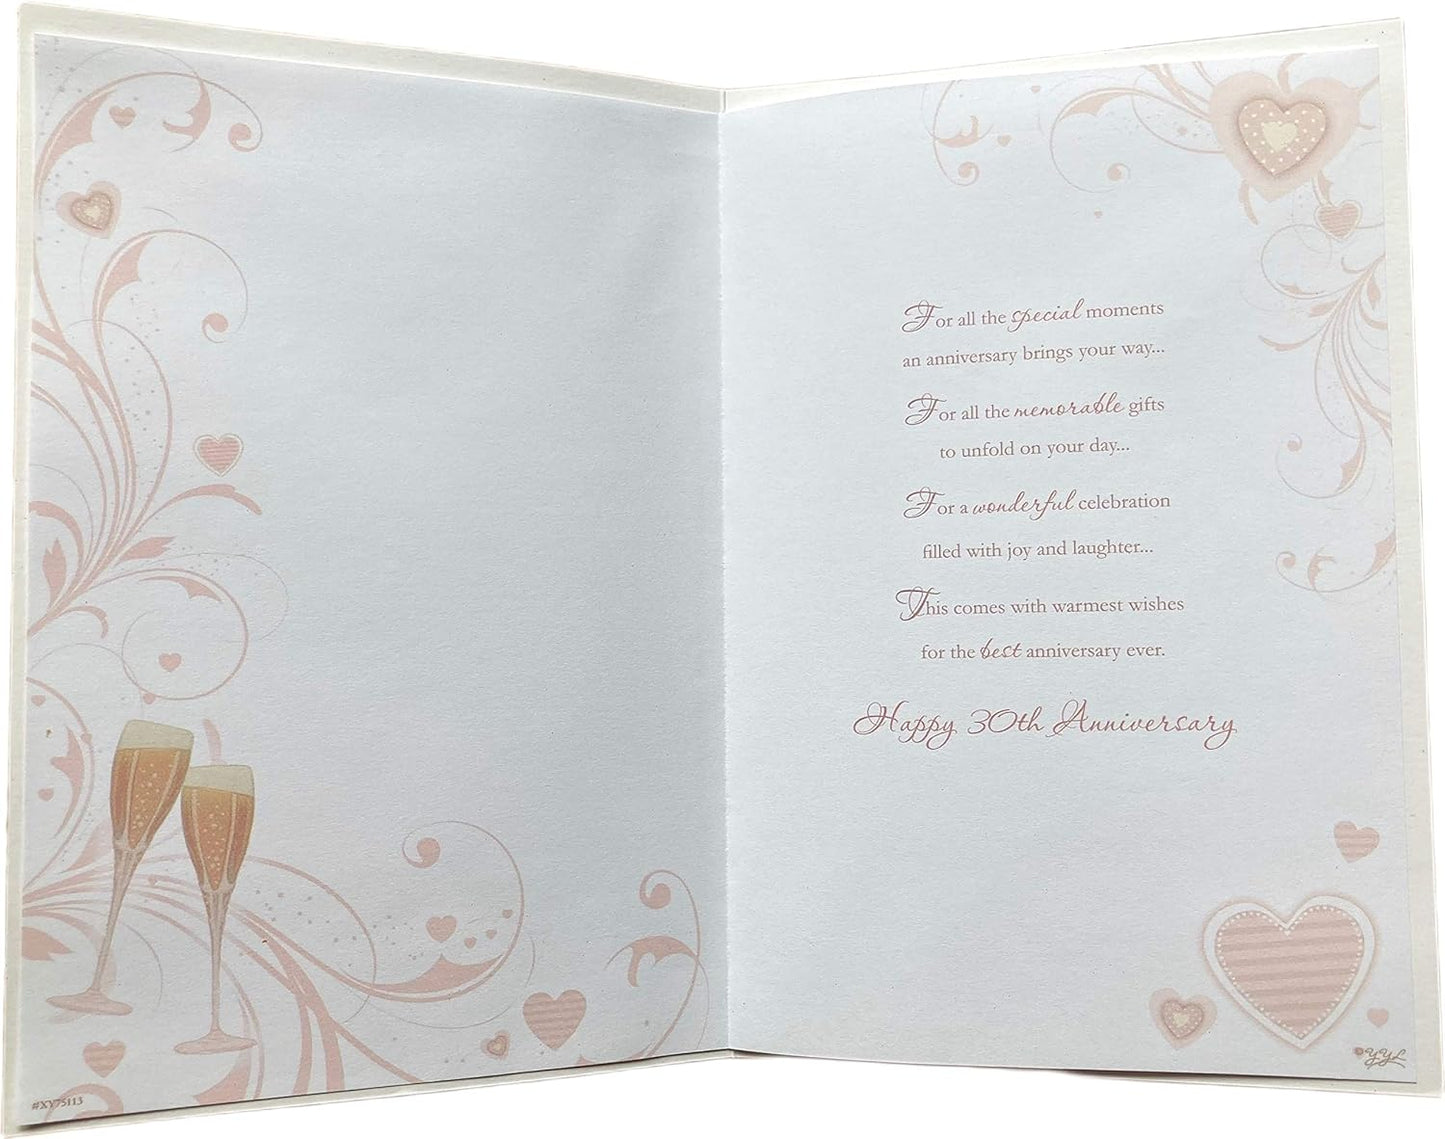 For all the special moments
an anniversary brings your way...
For all the memorable gifts
to unfold on your day...
For a wonderful celebration
filled with joy and laughter...
This comes with warmest wishes
for the best anniversary ever.
Happy 30th Anniversary
#XY75113